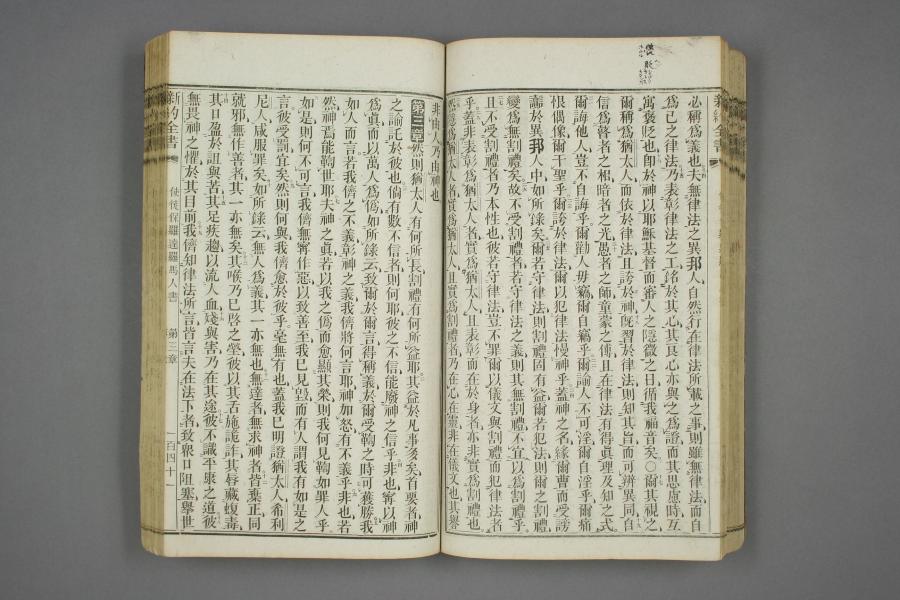 必稱爲義也夫無律法之異邦人自然行在律法所載之事則雖無律法而自
爲己之律法乃表彰律法之工銘於其心其良心亦與之爲證而其思慮時互
寓褒貶也卽於神以耶穌基督而審人之隱微之日循我福音矣○爾其視之
爾稱爲猶太人而依於律法且誇於神旣習於律法則知其旨而可辨異同自
信爲瞽者之相暗者之光愚者之師童蒙之傅且在律法有得眞理及知之式
爾誨他人豈不自誨乎爾勸人毋竊爾自竊乎爾諭人不可淫爾自淫乎爾痛
恨偶像爾干聖乎爾誇於律法爾以犯律法慢神乎蓋神之名緣爾曹而受謗
讟於異邦人中如所錄矣爾若守律法則割禮固有益爾若犯法則爾之割禮
變爲無割禮矣故不受割禮者若守律法之義則其無割禮不宜以爲割禮乎
且不受割禮者乃本性也彼若守律法豈不罪爾以儀文與割禮而犯律法者
乎蓋非表彰爲猶太人者實爲猶太人且表彰而在於身者亦非實爲割禮也
然隱爲猶太人者實爲猶太人且實爲割禮者乃在心在靈非在儀文也其譽
非由人乃由神也
第三章然則猶太人有何所長割禮有何所益耶其益於凡事多矣首要者神
之諭託於彼也倘有數不信者則何耶彼之不信能廢神之信乎非也寧以神
爲眞而以萬人爲僞如所錄云致爾於爾言得稱義於爾受鞫之時可獲勝我
如人而言若我儕之不義彰神之義我儕將何言耶神加怒有不義乎非也若
然神焉能鞫世耶夫神之眞若以我之僞而愈顯其榮則我何見鞫如罪人乎
如是則何不可言我儕無寧作惡以致善至我已見毀而有人謂我有如是之
言彼受罰宜矣然則何與我儕愈於彼乎毫無有也蓋我已明證猶太人希利
尼人咸服罪矣如所錄云無人爲義其一亦無也無達者無求神者皆棄正同
就邪無作善者其一亦無矣其喉乃已啓之塋彼以其舌施詭詐其唇藏蝮毒
其口盈於詛與苦其足疾趨以流人血殘與害乃在其途彼不識平康之道彼
無畏神之懼於其目前我儕知律法所言皆言夫在法下者致衆口阻塞舉世
新約全書 使徒保羅達羅馬人書 第三章 百四十一